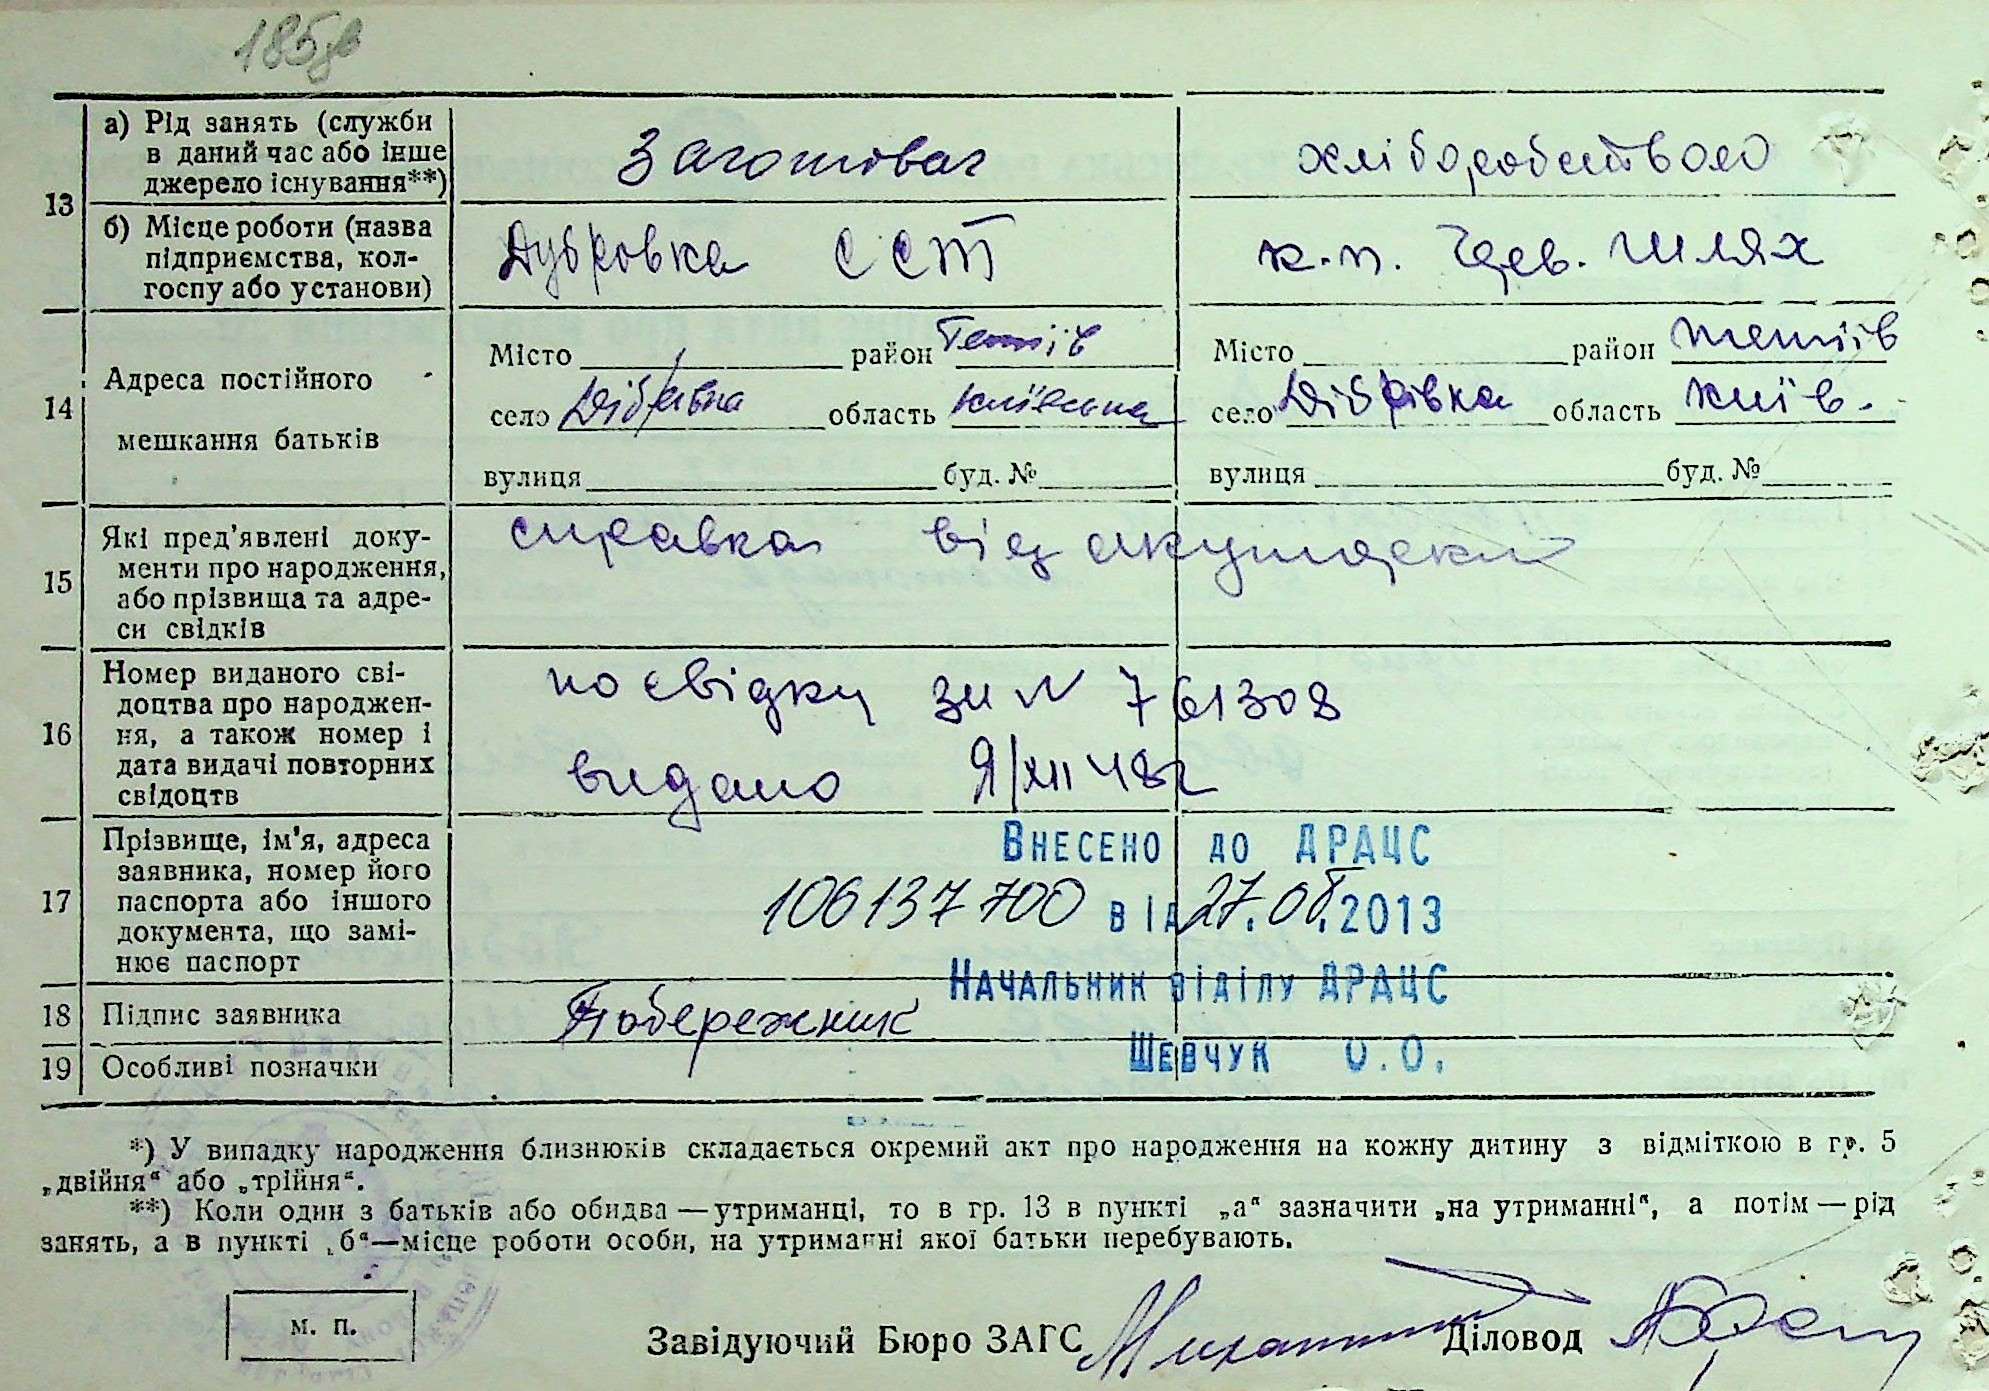 185зв
13
а) Рід занять (служби
в даний час або інше
джерело існування**)
Заготовач
хліборобством
б) Місце роботи (назва
підприємства, кол-
госпу або установи)
Дубровка ССТ
к.п. Черв. Шлях
14
Адреса постійного
мешкання батьків
Місто район Тетіїв
село Дібрівка область київська
вулиця буд. №
Місто район Тетіїв
село Дібрівка область Київ.
вулиця буд. №
15
Які пред'явлені доку-
менти про народження,
або прізвища та адре-
си свідків
справка від акушерки
16
Номер виданого сві-
доцтва про народжен-
ня, а також номер і
дата видачі повторних
свідоцтв
посвідку за N 761308
видано 9/XII 48г
17
Прізвище, ім'я, адреса
заявника, номер його
паспорта або іншого
документа, що замі-
нює паспорт
Внесено до ДРАЦС
106137700 від 27.05.2013
Начальник відділу ДРАЦС
Шевчук О.О.
18
Підпис заявника
Побережник
19
Особливі позначки
*) У випадку народження близнюків складається окремий акт про народження на кожну дитину з відміткою в гр. 5
„двійня“ або „трійня“.
**) Коли один з батьків або обидва — утриманці, то в гр. 13 в пункті „а“ зазначити „на утриманні“, а потім — рід
занять, а в пункті „б“—місце роботи особи, на утриманні якої батьки перебувають.
м. п.
Завідуючий Бюро ЗАГС
Діловод